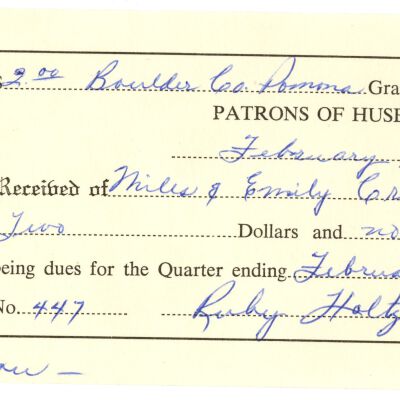 $2.00 Boulder Co. Pomona Gra
PATRONS OF HUSB
February
Received of Miles & Emily Cr
Two Dollars and no
being dues for the Quarter ending February
No. 447 Ruby Holtz